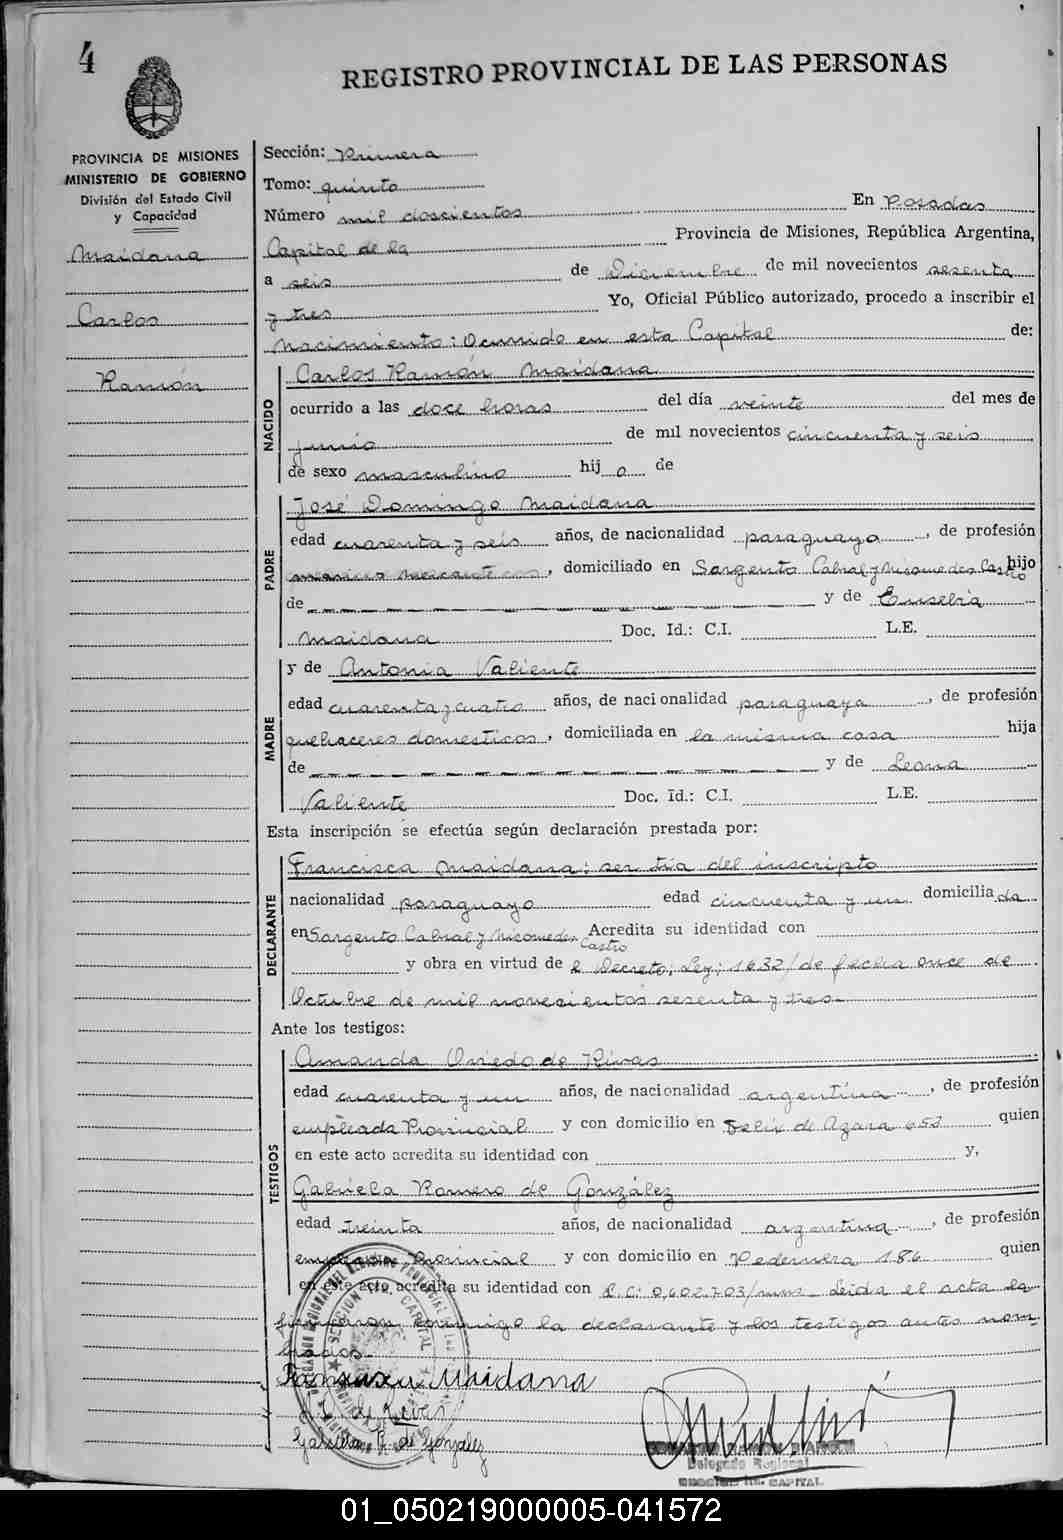 4
REGISTRO PROVINCIAL DE LAS PERSONAS
PROVINCIA DE MISIONES
MINISTERIO DE GOBIERNO
División del Estado Civil
y Capacidad
Maidana
Carlos
Ramón
Sección: Primera
Tomo: quinto
Número mil doscientos En Posadas
Capital de la Provincia de Misiones, República Argentina,
a seis de Diciembre de mil novecientos sesenta
y tres Yo, Oficial Público autorizado, procedo a inscribir el
Nacimiento: Ocurrido en esta Capital de:
NACIDO
Carlos Ramón Maidana
ocurrido a las doce horas del día veinte del mes de
junio de mil novecientos cincuenta y seis
de sexo masculino hij o de
PADRE
José Domingo Maidana
edad cuarenta y seis años, de nacionalidad paraguaya, de profesión
domiciliado en Sargento Cabral y Nicomedes Castro hijo
de y de Eusebia
Maidana Doc. Id.: C.I. L.E.
MADRE
y de Antonia Valiente
edad cuarenta y cuatro años, de nacionalidad paraguaya, de profesión
quehaceres domesticos, domiciliada en la misma casa hija
de y de Leona
Valiente Doc. Id.: C.I. L.E.
Esta inscripción se efectúa según declaración prestada por:
DECLARANTE
Francisca Maidana: ser tia del inscripto
nacionalidad paraguayo edad cincuenta y un domiciliada
en Sargento Cabral y Nicomedes Castro Acredita su identidad con
y obra en virtud de Decreto; Ley; 1632/de fecha once de
Octubre de mil novecientos sesenta y tres
Ante los testigos:
TESTIGOS
Amanda Oviedo de Rivas
edad cuarenta y un años, de nacionalidad argentina, de profesión
empleada Provincial y con domicilio en Felix de Azara quien
en este acto acredita su identidad con y,
Gabriela Romero de González
edad treinta años, de nacionalidad argentina, de profesión
empleada Provincial y con domicilio en Pedernera 186 quien
en este acto acredita su identidad con Leida el acta la
firmaron conmigo la declarante y los testigos antes nom-
brados.
Maidana
de Rivas
Gabriela R. de González
Delegado Regional
SECCION 1ra. CAPITAL
01_050219000005-041572